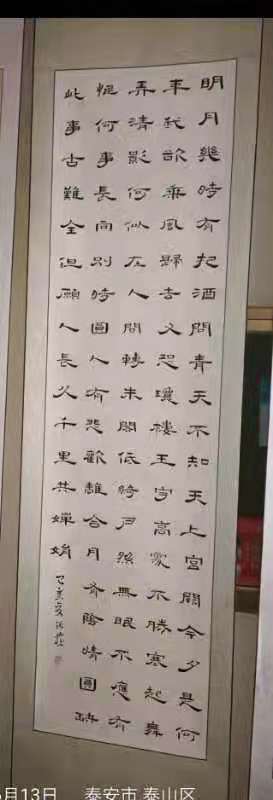 明月幾時有把酒問青天不知天上宮闕今夕是何
年我欲乘風歸去又恐瓊樓玉宇高處不勝寒起舞
弄清影何似在人間轉朱閣低綺戶照無眠不應有
恨何事長向別時圓人有悲歡離合月有陰晴圓缺
此事古難全但願人長久千里共嬋娟
己亥夏
月13日 泰安市 泰山区